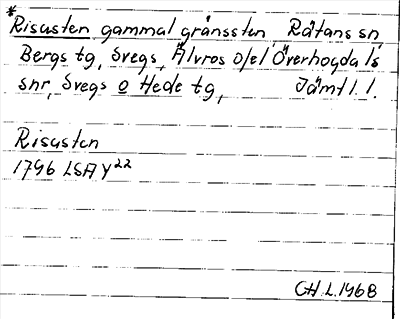 * Risasten gammal gränssten, Rätans sn,
Bergs tg, Svegs, Älvros o/el Överhogdals
snr, Svegs o Hede tg, Jämtl. l.
Risasten
1796 LSA Y 22
CH.L. 1968